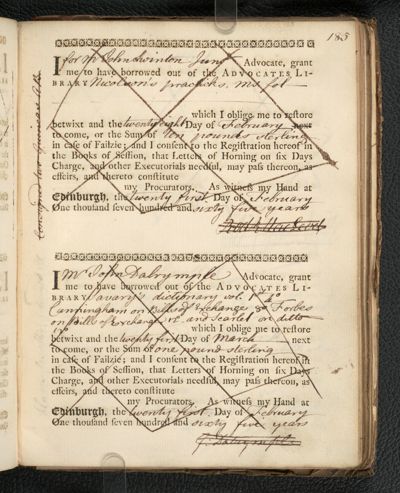 185
I for Mr John Swinton Junr Advocate, grant
me to have borrowed out of the ADVOCATES LI-
BRARY Nicolson's practicks, ms fol
which I oblige me to restore
betwixt and the twenty eight Day of February next
to come, or the Sum of Ten pounds sterling
in case of Failzie; and I consent to the Registration hereof in
the Books of Session, that Letters of Horning on six Days
Charge, and other Executorials needful, may pass thereon, as
effeirs, and thereto constitute
my Procurators. As witness my Hand at
Edinburgh, the twenty first Day of February
One thousand seven hundred and sixty five years
I Mr John Dalrymple Advocate, grant
me to have borrowed out of the ADVOCATES LI-
BRARY Savary's dictionary vol. 1 4°
Cunningham on Bills of Exchange 8° Forbes
on Bills of Exchange 12° and Scarlet on ditto
which I oblige me to restore
betwixt and the twenty first Day of March next
to come, or the Sum of one pound sterling
in case of Failzie; and I consent to the Registration hereof in
the Books of Session, that Letters of Horning on six Days
Charge, and other Executorials needful, may pass thereon, as
effeirs, and thereto constitute
my Procurators. As witness my Hand at
Edinburgh, the twenty first Day of February
One thousand seven hundred and sixty five years
J. Dalrymple